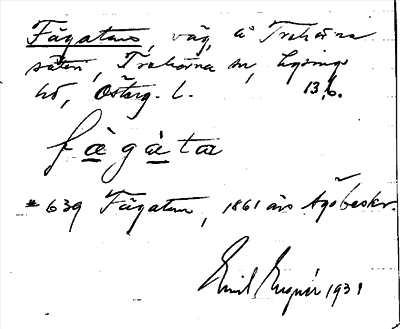 Fågatan, väg, å Trehörna
säteri, Trehörna sn, Lysings
hd, Österg. l. 13/6.
fågàta
* 639 Fågatan, 1861 års Ägobeskr.
Emil Engnér 1931